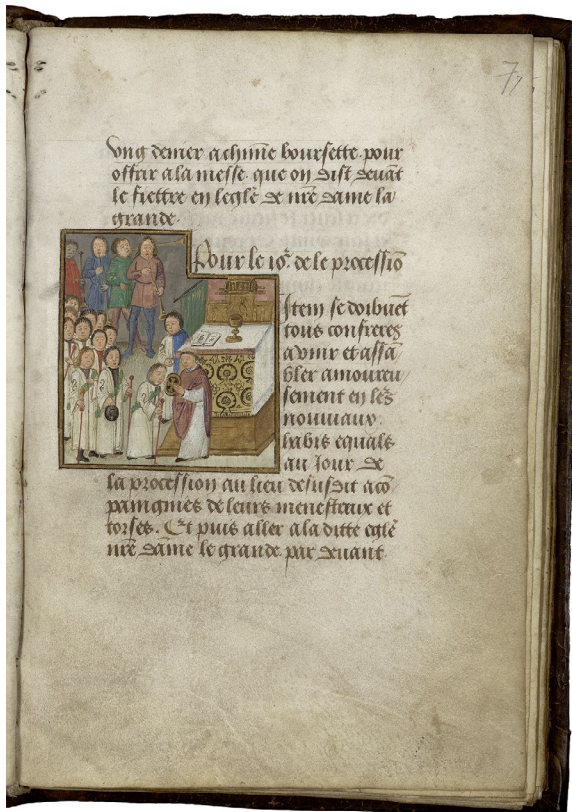 77
vng denier a chune boursette pour
offrir a la messe que on dist deuāt
le fiettre en leglē de nrē dame la
grande.
Pour le ioꝛ. de le processiō
Item se doibuēt
tous confreres
a vnir et assā
bler amoureu
sement en lēs
nouuiaux
habis equals
au Jour de
la processiō au lieu desusdit acō
paingnies de leurs menestreux et
torses. Et puis aller a la ditte eglē
nrē dāme le grande par deuant